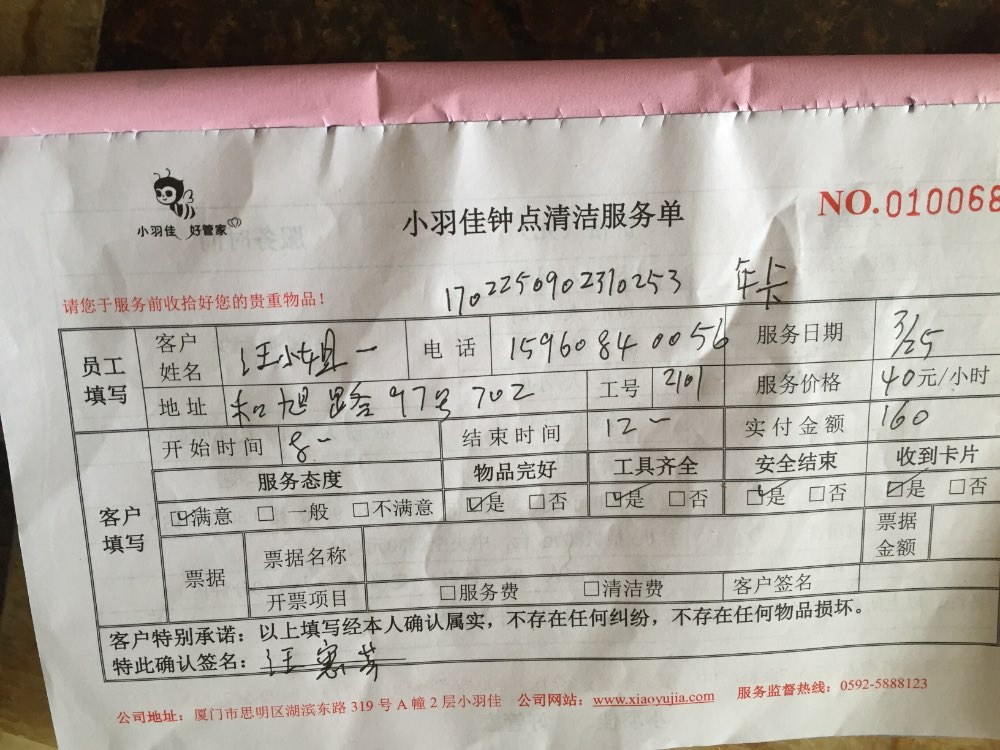 小羽佳 好管家
小羽佳钟点清洁服务单
NO.010068
请您于服务前收拾好您的贵重物品！
1702250902310253 年卡
员工填写 客户姓名 汪小姐 电话 15960840056 服务日期 3/25
地址 和旭路97号702 工号 2101 服务价格 40元/小时
客户填写 开始时间 8 结束时间 12 实付金额 160
服务态度 物品完好 工具齐全 安全结束 收到卡片
满意 一般 不满意 是 否 是 否 是 否 是 否
票据 票据名称 票据金额
开票项目 服务费 清洁费 客户签名
客户特别承诺：以上填写经本人确认属实，不存在任何纠纷，不存在任何物品损坏。
特此确认签名：汪惠芳
公司地址：厦门市思明区湖滨东路 319 号 A 幢 2 层小羽佳 公司网站：www.xiaoyujia.com 服务监督热线：0592-5888123